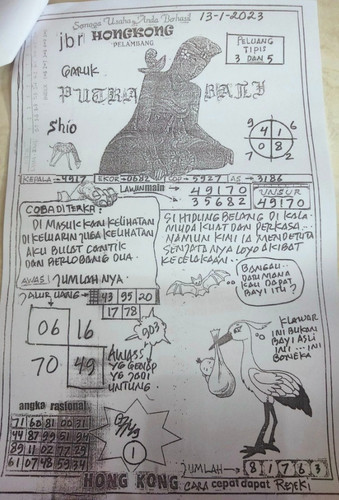 Semoga Usaha Anda Berhasil
13-1-2023
jbr HONGKONG
PELAMBANG
PELUANG
TIPIS
3 DAN 5
GARUK
PUTRA BALI
Shio
9 6
4 1
0 8
7 2
KEPALA → 4917 EKOR → 0682 COP → 5927 AS → 3186
LAWAN main → 49170
→ 35682
UNSUR
49170
COBA DI TERKA:
DI MASUK KAN KELIHATAN
DI KELUARIN JUGA KELIHATAN
AKU BULAT CANTIK
DAN BERLOBANG DUA.
AWAS! JUMLAH NYA.
SI HIDUNG BELANG DI KALA
MUDA KUAT DAN PERKASA
NAMUN KINI IA MENDERITA
SENJATA NYA LOYO AKIBAT
KECELAKAAN
JALUR UANG → 43 95 20
17 78
BANGAU
DARI MANA
KAU DAPAT
BAYI ITU ?
06 16
70 49
AWASS
YG GENAP
YG JADI
UNTUNG.
KLAWAR
INI BUKAN
BAYI ASLI
INI ... INI
BONEKA
angka rasional
71 60 81 00 31
44 87 99 51 94
89 11 02 77 29
61 07 48 59 34
1
JUMLAH → 8 1 7 6 3
HONG KONG CARA cepat dapat REJEKI